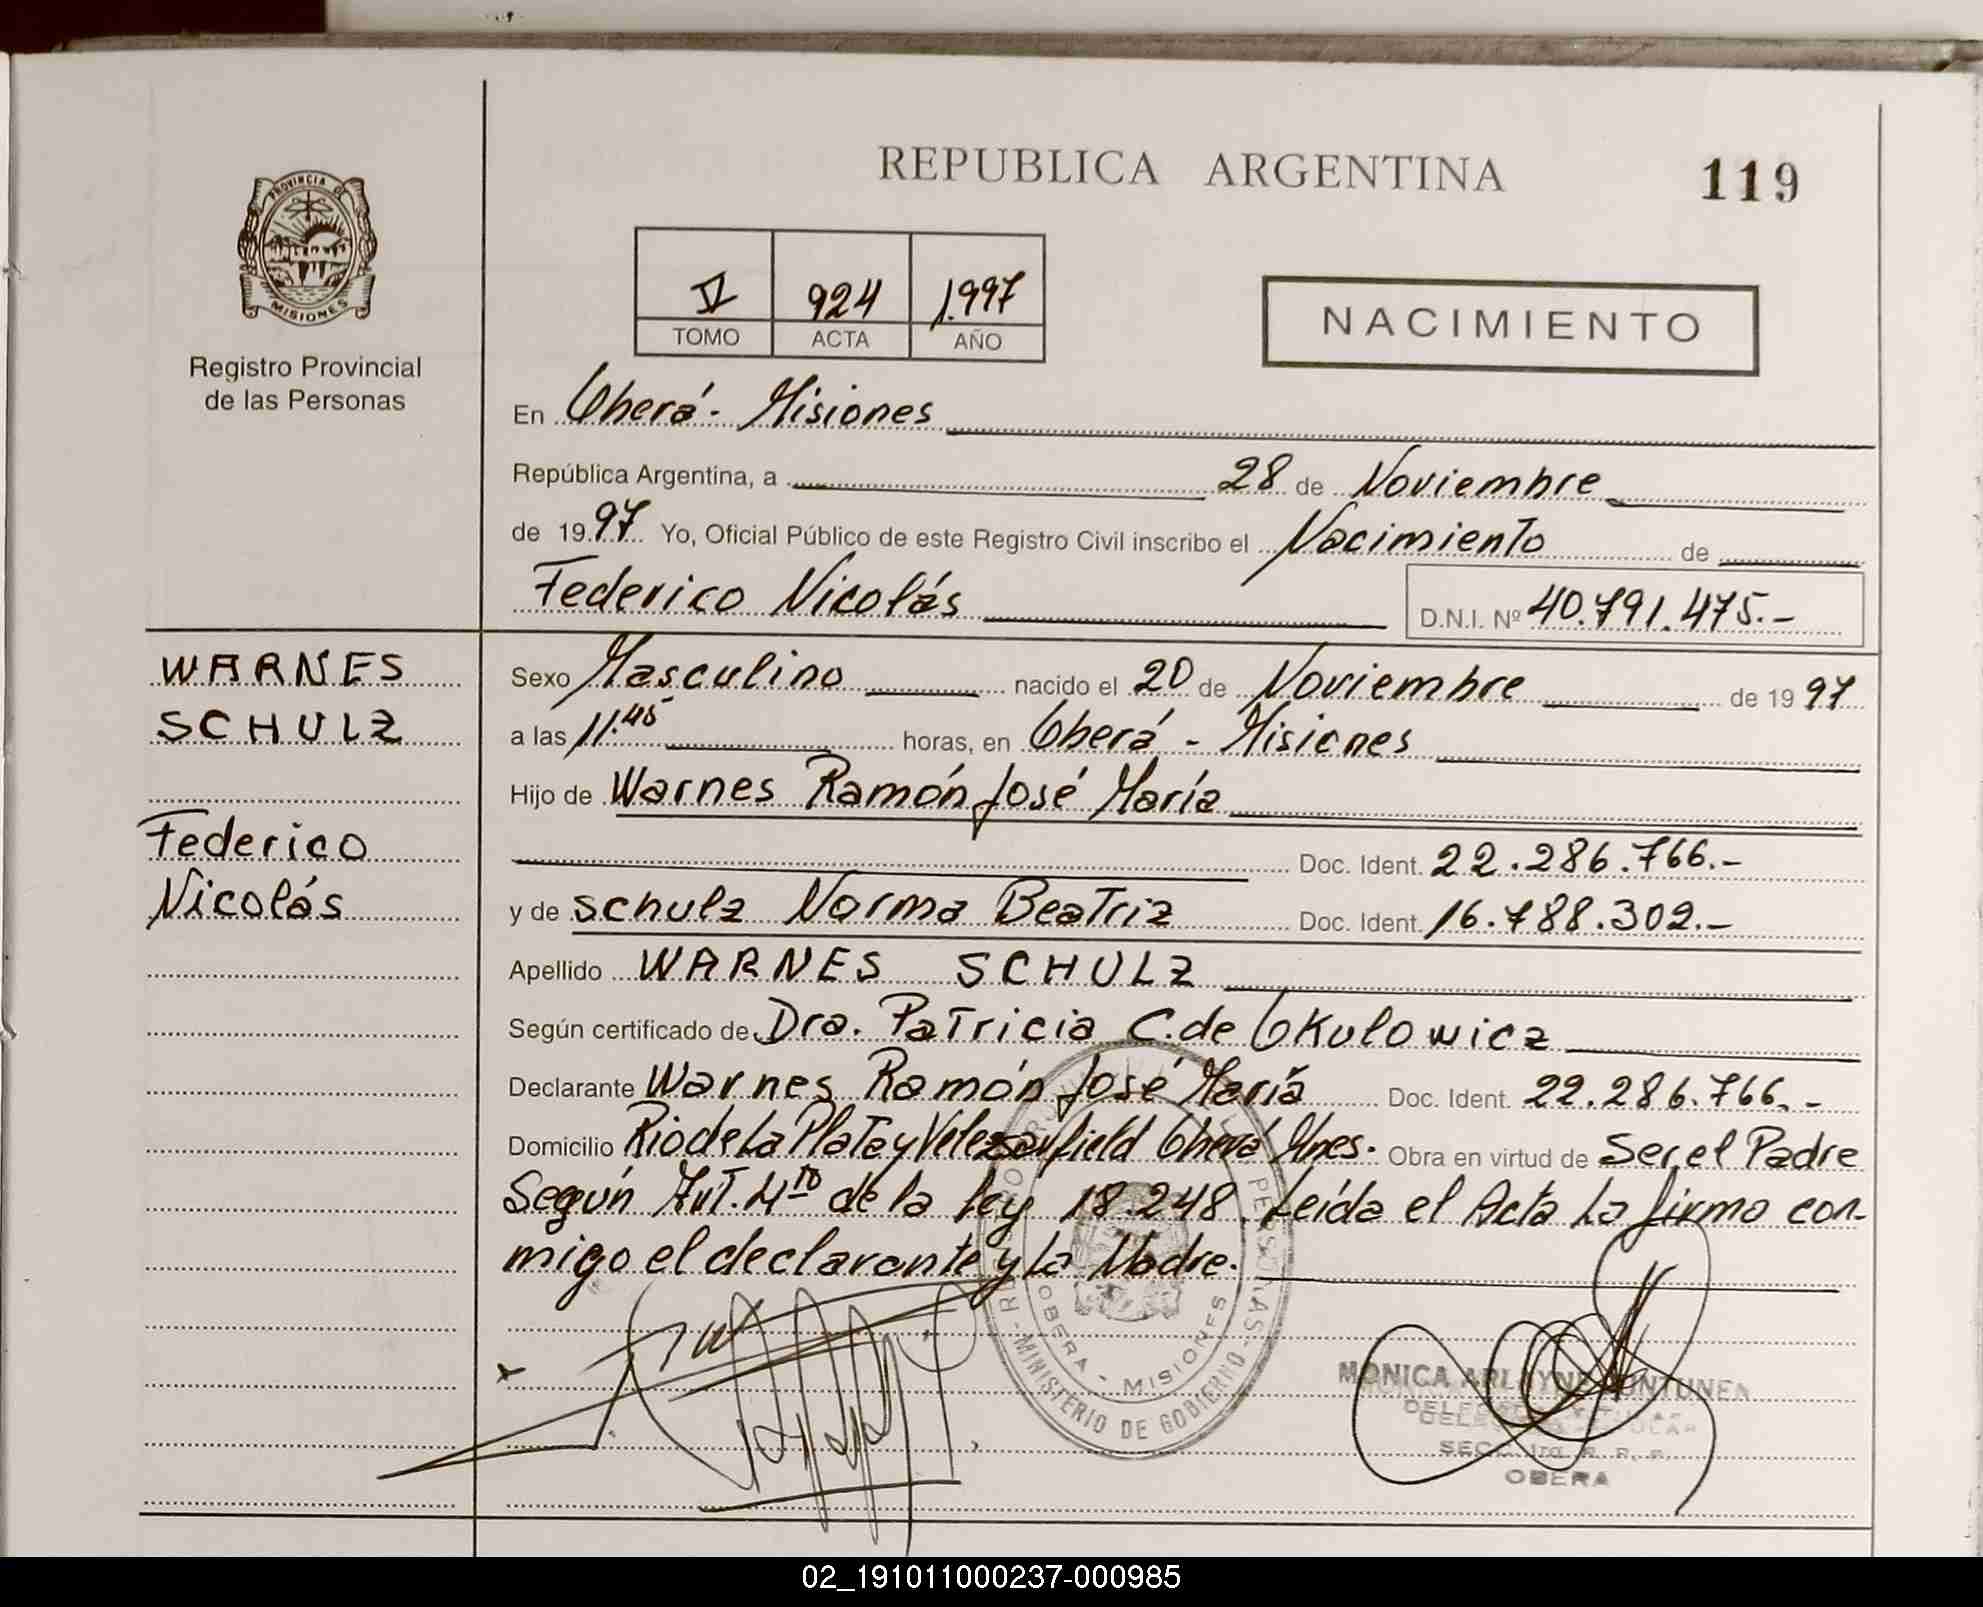 REPUBLICA ARGENTINA
119
PROVINCIA DE
MISIONES
Registro Provincial
de las Personas
V 924 1.997
TOMO ACTA AÑO
NACIMIENTO
En Oberá - Misiones
República Argentina, a 28 de Noviembre
de 1997 Yo, Oficial Público de este Registro Civil inscribo el Nacimiento de
Federico Nicolás D.N.I. Nº 40.791.475.-
WARNES
SCHULZ
Federico
Nicolás
Sexo Masculino nacido el 20 de Noviembre de 1997
a las 11.45 horas, en Oberá - Misiones
Hijo de Warnes Ramón José María
Doc. Ident. 22.286.766.-
y de Schulz Norma Beatriz Doc. Ident. 16.788.302.-
Apellido WARNES SCHULZ
Según certificado de Dra. Patricia C. de Okulowicz
Declarante Warnes Ramón José María Doc. Ident. 22.286.766.-
Domicilio Rio de La Plata y Velezsarfield Oberá Mnes. Obra en virtud de Ser el Padre
Según Art. 4to de la ley 18.248. Leída el Acta La firma con-
migo el declarante y La Madre.
PERSONAS
OBERA - MISIONES
MINISTERIO DE GOBIERNO
MONICA
SECC. 1ra. R. P. P.
OBERA
02_191011000237-000985